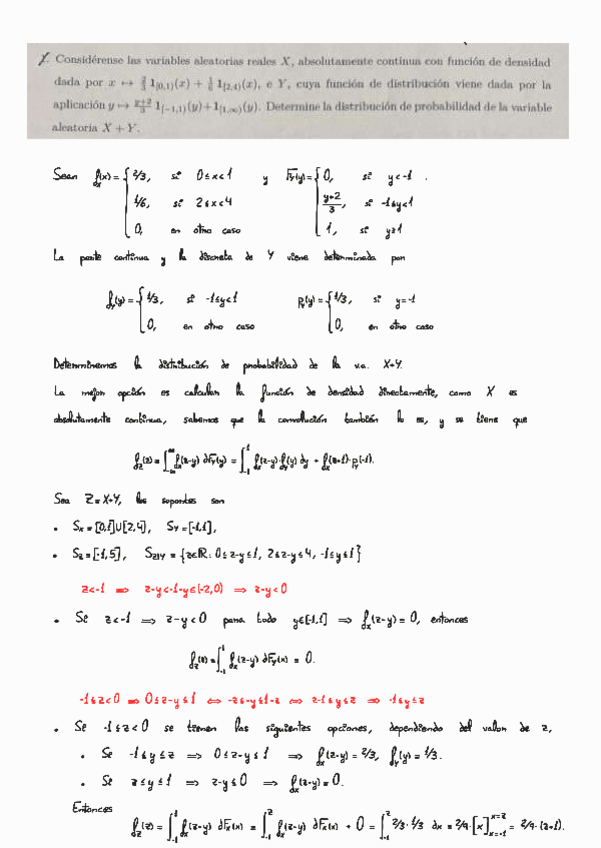 Considérense las variables aleatorias reales X, absolutamente continua con función de densidad
dada por x ↦ 2/3 1[0,1)(x) + 1/6 1[2,4)(x), e Y, cuya función de distribución viene dada por la
aplicación y ↦ (y+2)/3 1[−1,1)(y)+1[1,∞)(y). Determine la distribución de probabilidad de la variable
aleatoria X + Y.
Sean fx(x) = { 2/3, si 0≤x<1 y Fy(y) = { 0, si y<-1 .
1/6, si 2≤x<4 (y+2)/3, si -1≤y<1
0, en otro caso 1, si y≥1
La parte continua y la discreta de Y viene determinada por
fy(y) = { 1/3, si -1≤y<1 py(y) = { 1/3, si y=-1
0, en otro caso 0, en otro caso
Determinemos la distribución de probabilidad de la v.a. X+Y.
La mejor opción es calcular la función de densidad directamente, como X es
absolutamente continua, sabemos que la convolución también lo es, y se tiene que
Sea Z=X+Y, los soportes son
• Sx = [0,1]∪[2,4], Sy = [-1,1],
• Sz = [-1,5], Sz|y = {z∈ℝ: 0≤z-y≤1, 2≤z-y≤4, -1≤y≤1}
z<-1 ⟹ z-y<-1-y∈(-2,0) ⟹ z-y<0
• Si z<-1 ⟹ z-y<0 para todo y∈[-1,1] ⟹ fx(z-y) = 0, entonces
-1≤z<0 ⟹ 0≤z-y≤1 ⟺ -z≤-y≤1-z ⟺ z-1≤y≤z ⟹ -1≤y≤z
• Si -1≤z<0 se tienen las siguientes opciones, dependiendo del valor de z,
• Si -1≤y≤z ⟹ 0≤z-y≤1 ⟹ fx(z-y) = 2/3, fy(y) = 1/3.
• Si z≤y≤1 ⟹ z-y≤0 ⟹ fx(z-y) = 0.
Entonces